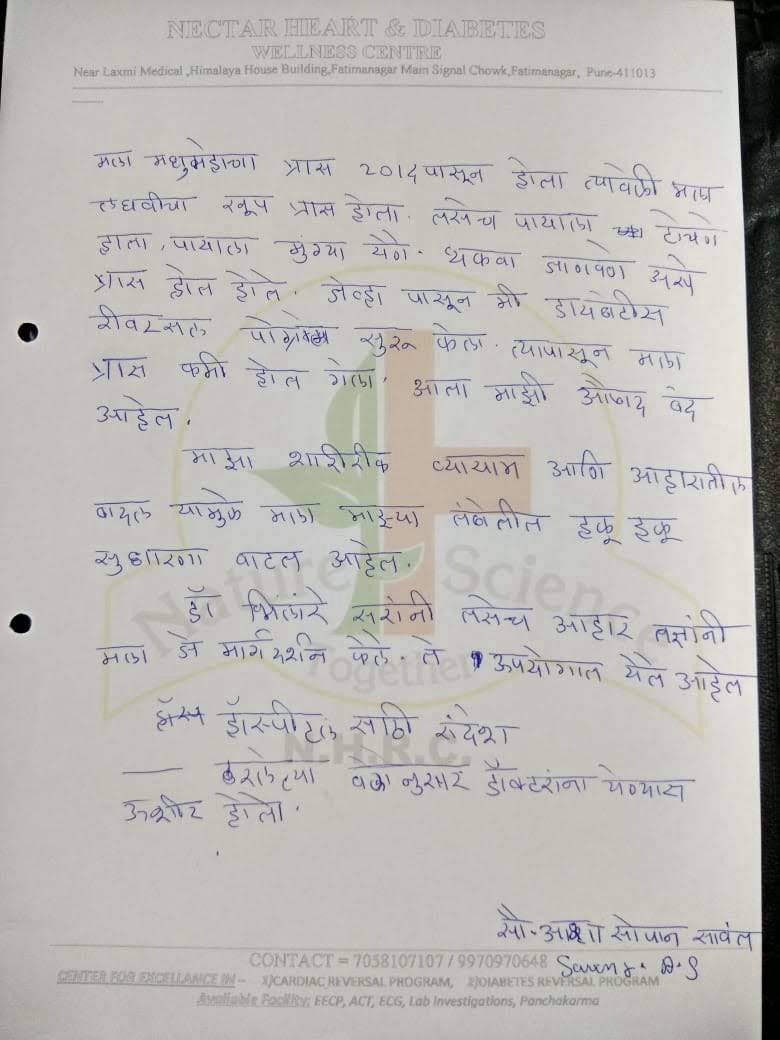 NECTAR HEART & DIABETES
WELLNESS CENTRE
Near Laxmi Medical ,Himalaya House Building,Fatimanagar Main Signal Chowk,Fatimanagar, Pune-411013
मला मधुमेहाचा त्रास 2014 पासून होता त्यावेळी मला
लघवीचा खूप त्रास होता. तसेच पायाला टोचणे
होता, पायाला मुंग्या येणे. थकवा जाणवणे असे
त्रास होत होते. जेव्हा पासून मी डायबेटीस
रीवरसल सुरू केला. त्यापासून मला
त्रास कमी होत गेला. आता माझी औषध बंद
आहेत.
माझा शारीरीक व्यायाम आणि आहारातील
बादल यामुळे मला माझ्या तब्येतीत हळू हळू
सुधारणा वाटत आहेत.
डॉ सरांनी तसेच आहार तज्ञांनी
मला जे मार्गदर्शन केले. ते उपयोगात येत आहेत
हॉस्पीटल साठि संदेश
— ठरलेल्या वेळेनुसार डॉक्टरांना येण्यास
ऊशीर होतो.
सौ. आशा सोपान सावंत
CONTACT = 7058107107 / 9970970648
CENTER FOR EXCELLANCE IN – 1)CARDIAC REVERSAL PROGRAM, 2)DIABETES REVERSAL PROGRAM
Available Facility: EECP, ACT, ECG, Lab Investigations, Panchakarma
Nature Science
Together
N.H.R.C.